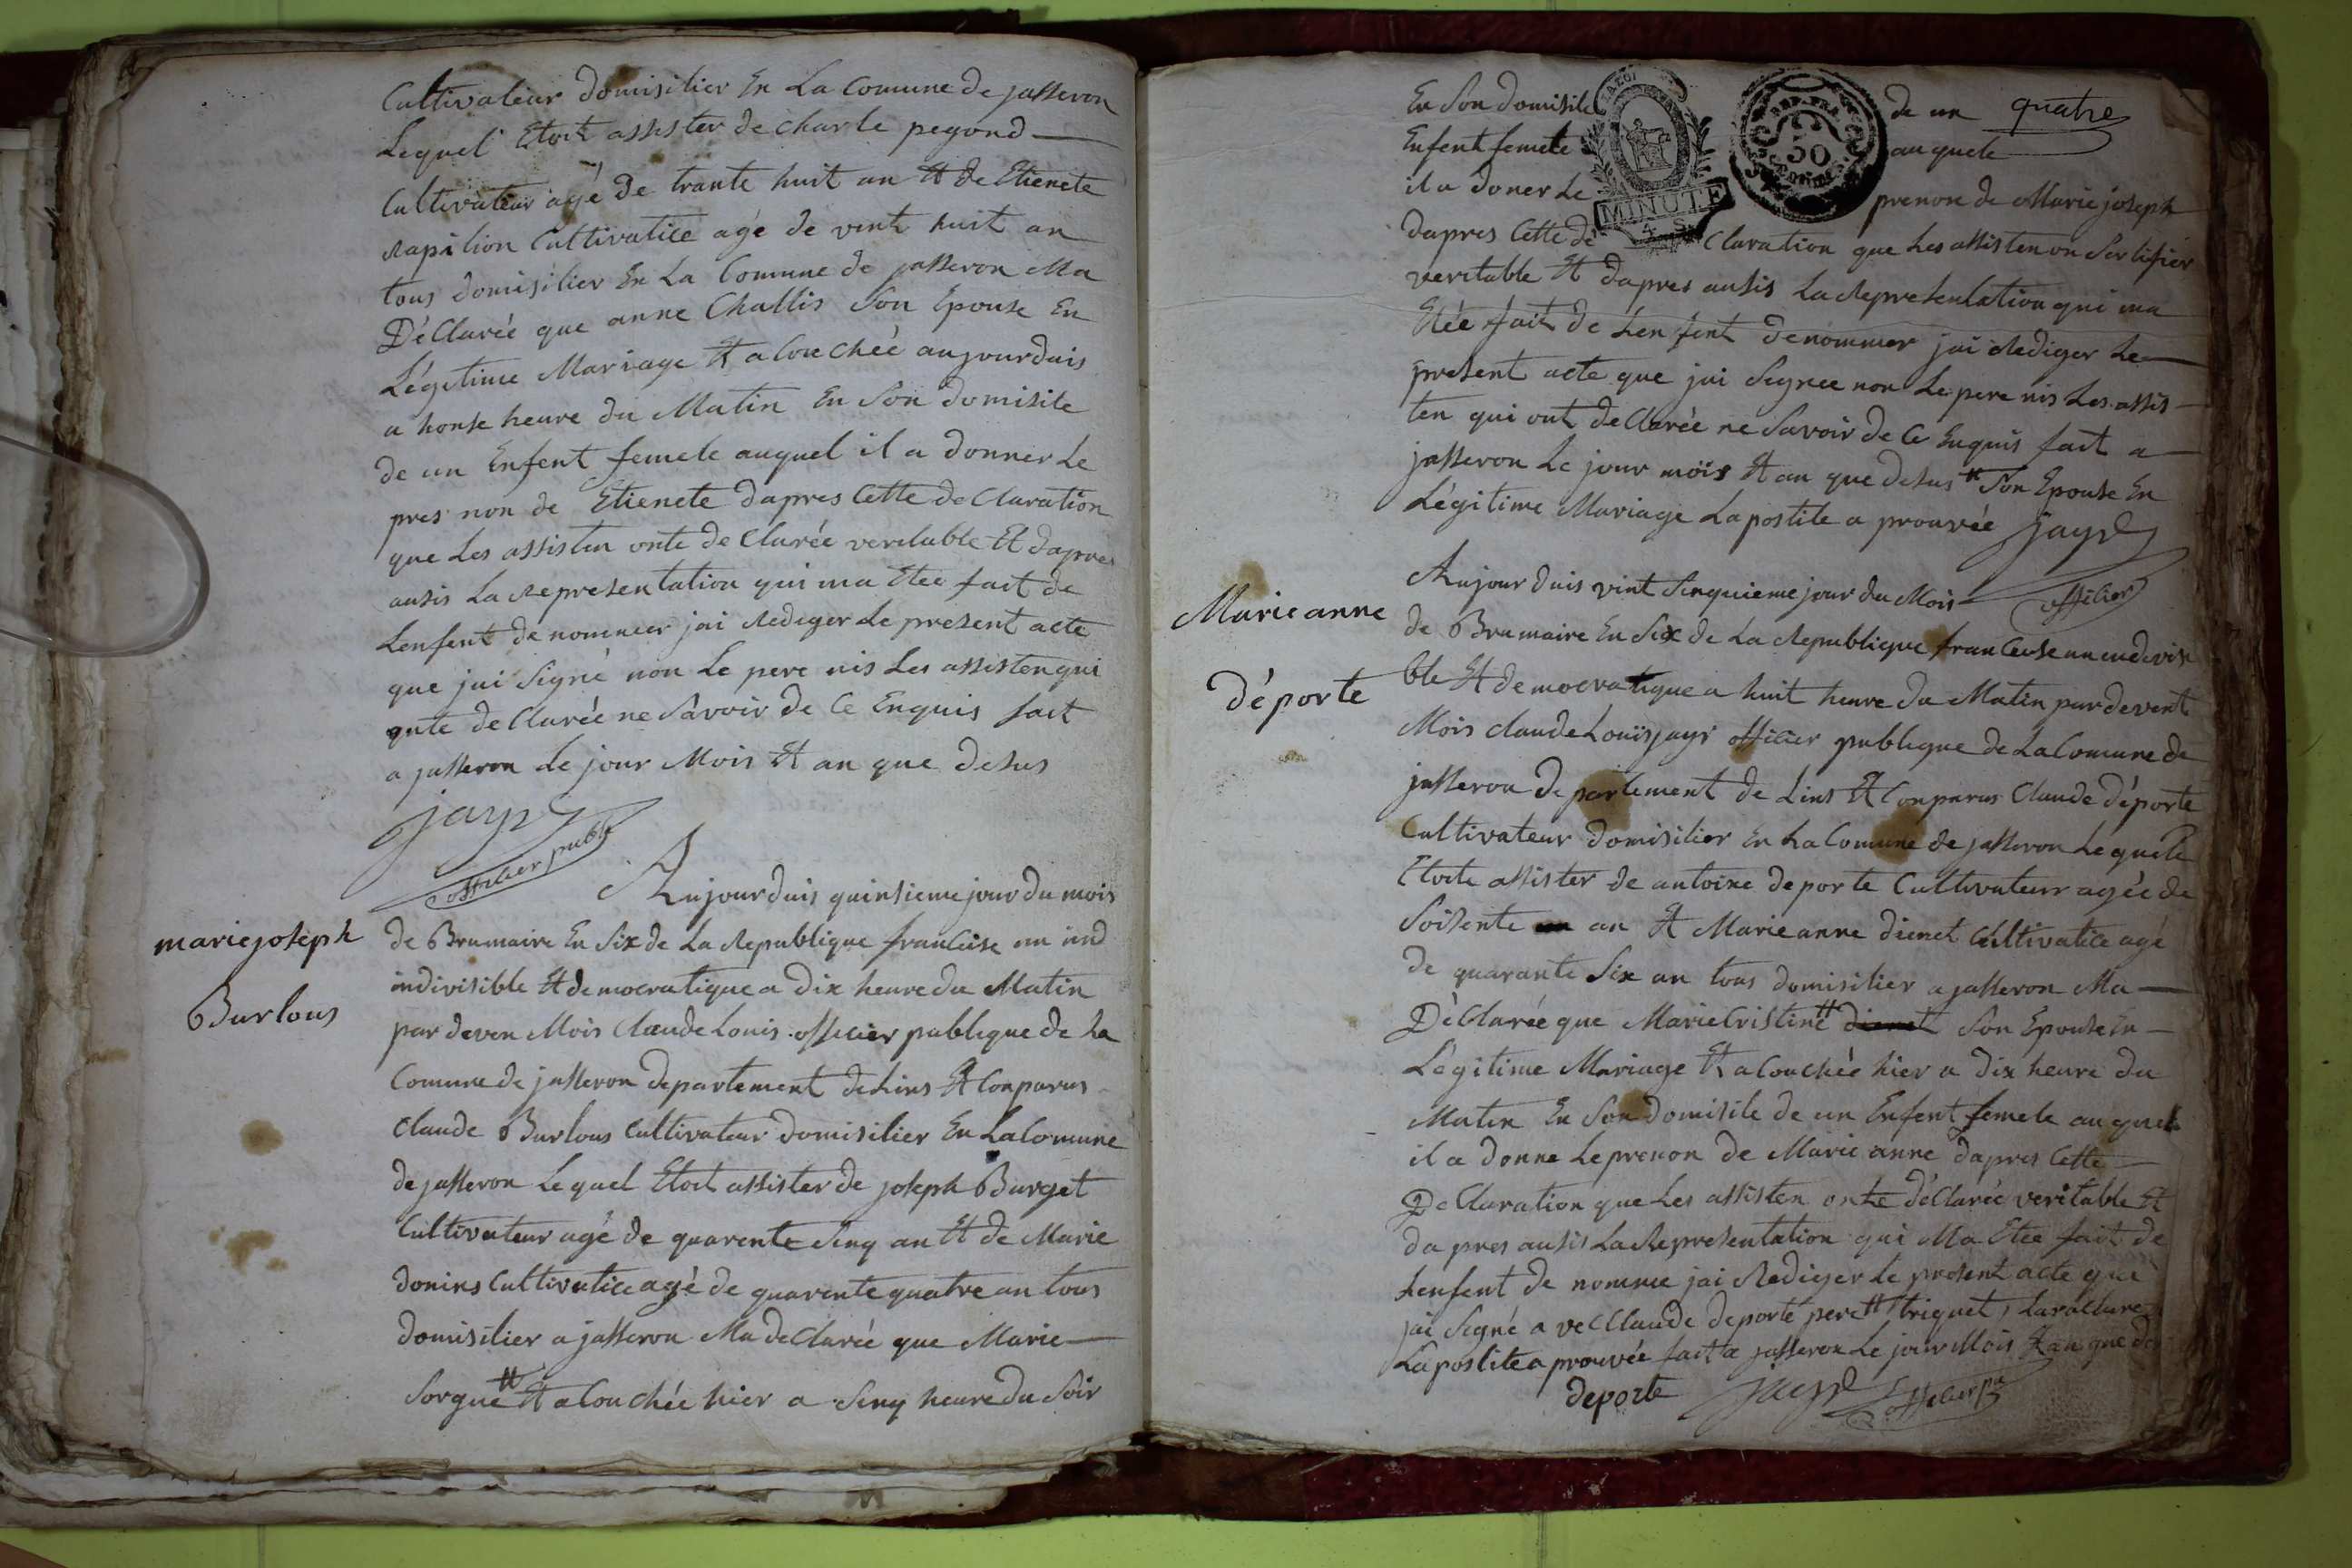 Cultivateur domisilier En La Comune de jasseron
Lequel Etoit assister de charle pegond
Cultivateur agé de trante huit an Et de Etienete
Rapilion Cultivatice agé de vent huit an
tous domisilier En La Comune de jasseron Ma
DéClarée que anne Challis Son Epouse En
Légitime Mariage Et a Couchée aujourduis
a honse heure du Matin En Son domisile
de un Enfent femele auquel il a donner Le
pres non de Etienete dapres Cette deClaration
que Les assisten onte de Clarée veritable Et dapres
ausis La Representation qui ma Etee fait de
Lenfent denommer jai Rediger Le present acte
que jai Signé non Le pere nis Les assisten qui
onte deClarée ne Savoir de Ce Enquis fait
a jasseron Le jour Mois Et an que desus
jayr
officier publi
mariejoseph
Burlous
Aujourduis quinsieme jour du mois
de Brumaire En Six de La Republique francaise un ind
indivisible Et democratique a Dix heure du Matin
par deven Mois Claude Louis officier publique de La
Comune de jasseron departement de Lins Et Conparus
Claude Burlous Cultivateur domisilier En La Comune
de jasseron Le quel Etoit assister de joseph Burget
Cultivateur agé de quarente Sinq an Et de Marie
donins Cultivatice agé de quarente quatre an tous
domisilier a jasseron Ma deClarée que Marie
Sorgue # Et a Couchée hier a Sinq heure du Soir
En Son domisile de un quatre
Enfent femele auquele
il a doner Le prenon de Marie joseph
dapres Cette dé Claration que Les assisten on Sertifier
veritable Et dapres ausis La Representation qui ma
Etée fait de Lenfent denommer jai Rediger Le
present acte que jai Signee non Le pere nis Les assis
ten qui ont deClarée ne Savoir de Ce Enquis fait a
jasseron Le jour mois Et an que desus # Son Epouse En
Légitime Mariage Lapostile a prouvée jayr
officier
MINUTE
REP. FRA.
50
Marie anne
déporte
Aujourduis vint Sinquieme jour du Mois
de Brumaire En Six de La Republique franceuse un indivisi
ble Et democratique a huit heure du Matin pardevent
Mois claude Louis jayr officier publique de La Comune de
jasseron departement de Lins Et Conparus Claude déporte
Cultivateur domisilier En La Comune de jasseron Lequele
Etoite assister de antoine deporte Cultivateur agée de
Soisente an Et Marie anne dienet Cultivatice agé
de quarante Six an tous domisilier a jasseron Ma
DéClarée que Marie Cristine # dienet Son Epouse En
Légitime Mariage Et a Couchée hier a Dix heure du
Matin En Son domisile de un Enfent femele auquel
il a donne Le prenon de Marie anne dapres Cette
DeClaration que Les assisten onte déClarée veritable Et
dapres ausis La Representation qui Ma Etee fait de
Lenfent de nomme jai Rediger Le present acte que
jai Signé a veC Claude deporte pere # triquet, La raClure
Lapostile a prouvée fait a jasseron Le jour Mois Et an que des
deporte jayr officier pu